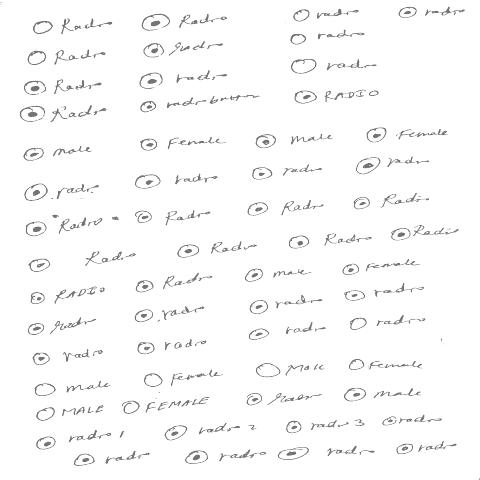 Radio Radio radio radio
Radio radio radio
Radio radio radio
Radio radio button RADIO
male Female male Female
radio radio radio radio
"Radio" Radio Radio Radio
Radio Radio Radio Radio
RADIO Radio male Female
radio radio radio radio
radio radio radio radio
male Female Male Female
MALE FEMALE male
radio 1 radio 2 radio 3 radio
radio radio radio radio